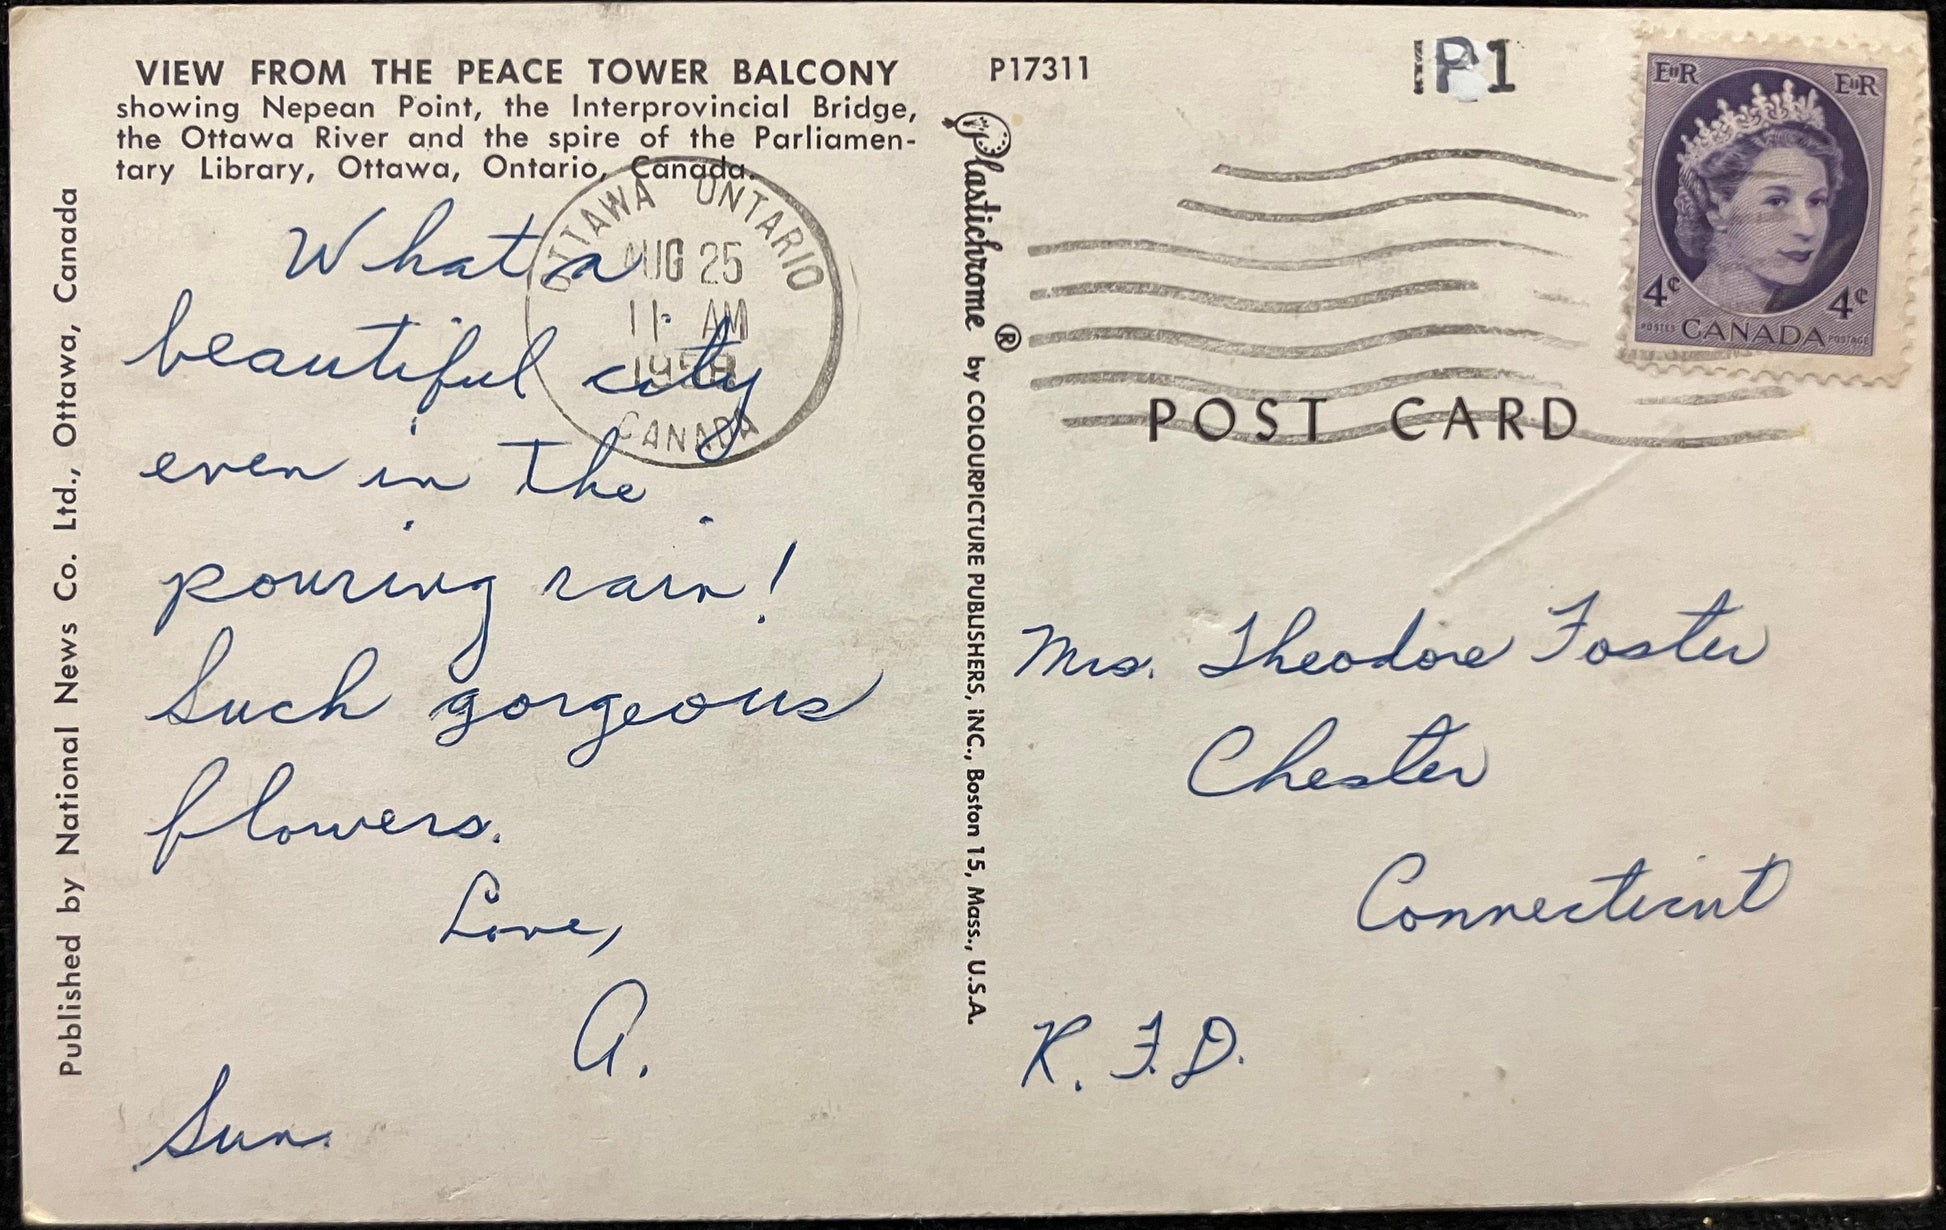 VIEW FROM THE PEACE TOWER BALCONY
showing Nepean Point, the Interprovincial Bridge,
the Ottawa River and the spire of the Parliamen-
tary Library, Ottawa, Ontario, Canada.
What a
beautiful city
even in the
pouring rain!
Such gorgeous
flowers.
Love,
A.
Sun.
Published by National News Co. Ltd., Ottawa, Canada
OTTAWA ONTARIO
AUG 25
11 AM
1958
CANADA
Plastichrome ® by COLOURPICTURE PUBLISHERS, INC., Boston 15, Mass., U.S.A.
P17311
1P1
EIIR EIIR
4¢ 4¢
POSTES CANADA POSTAGE
POST CARD
Mrs. Theodore Foster
Chester
Connecticut
R.F.D.